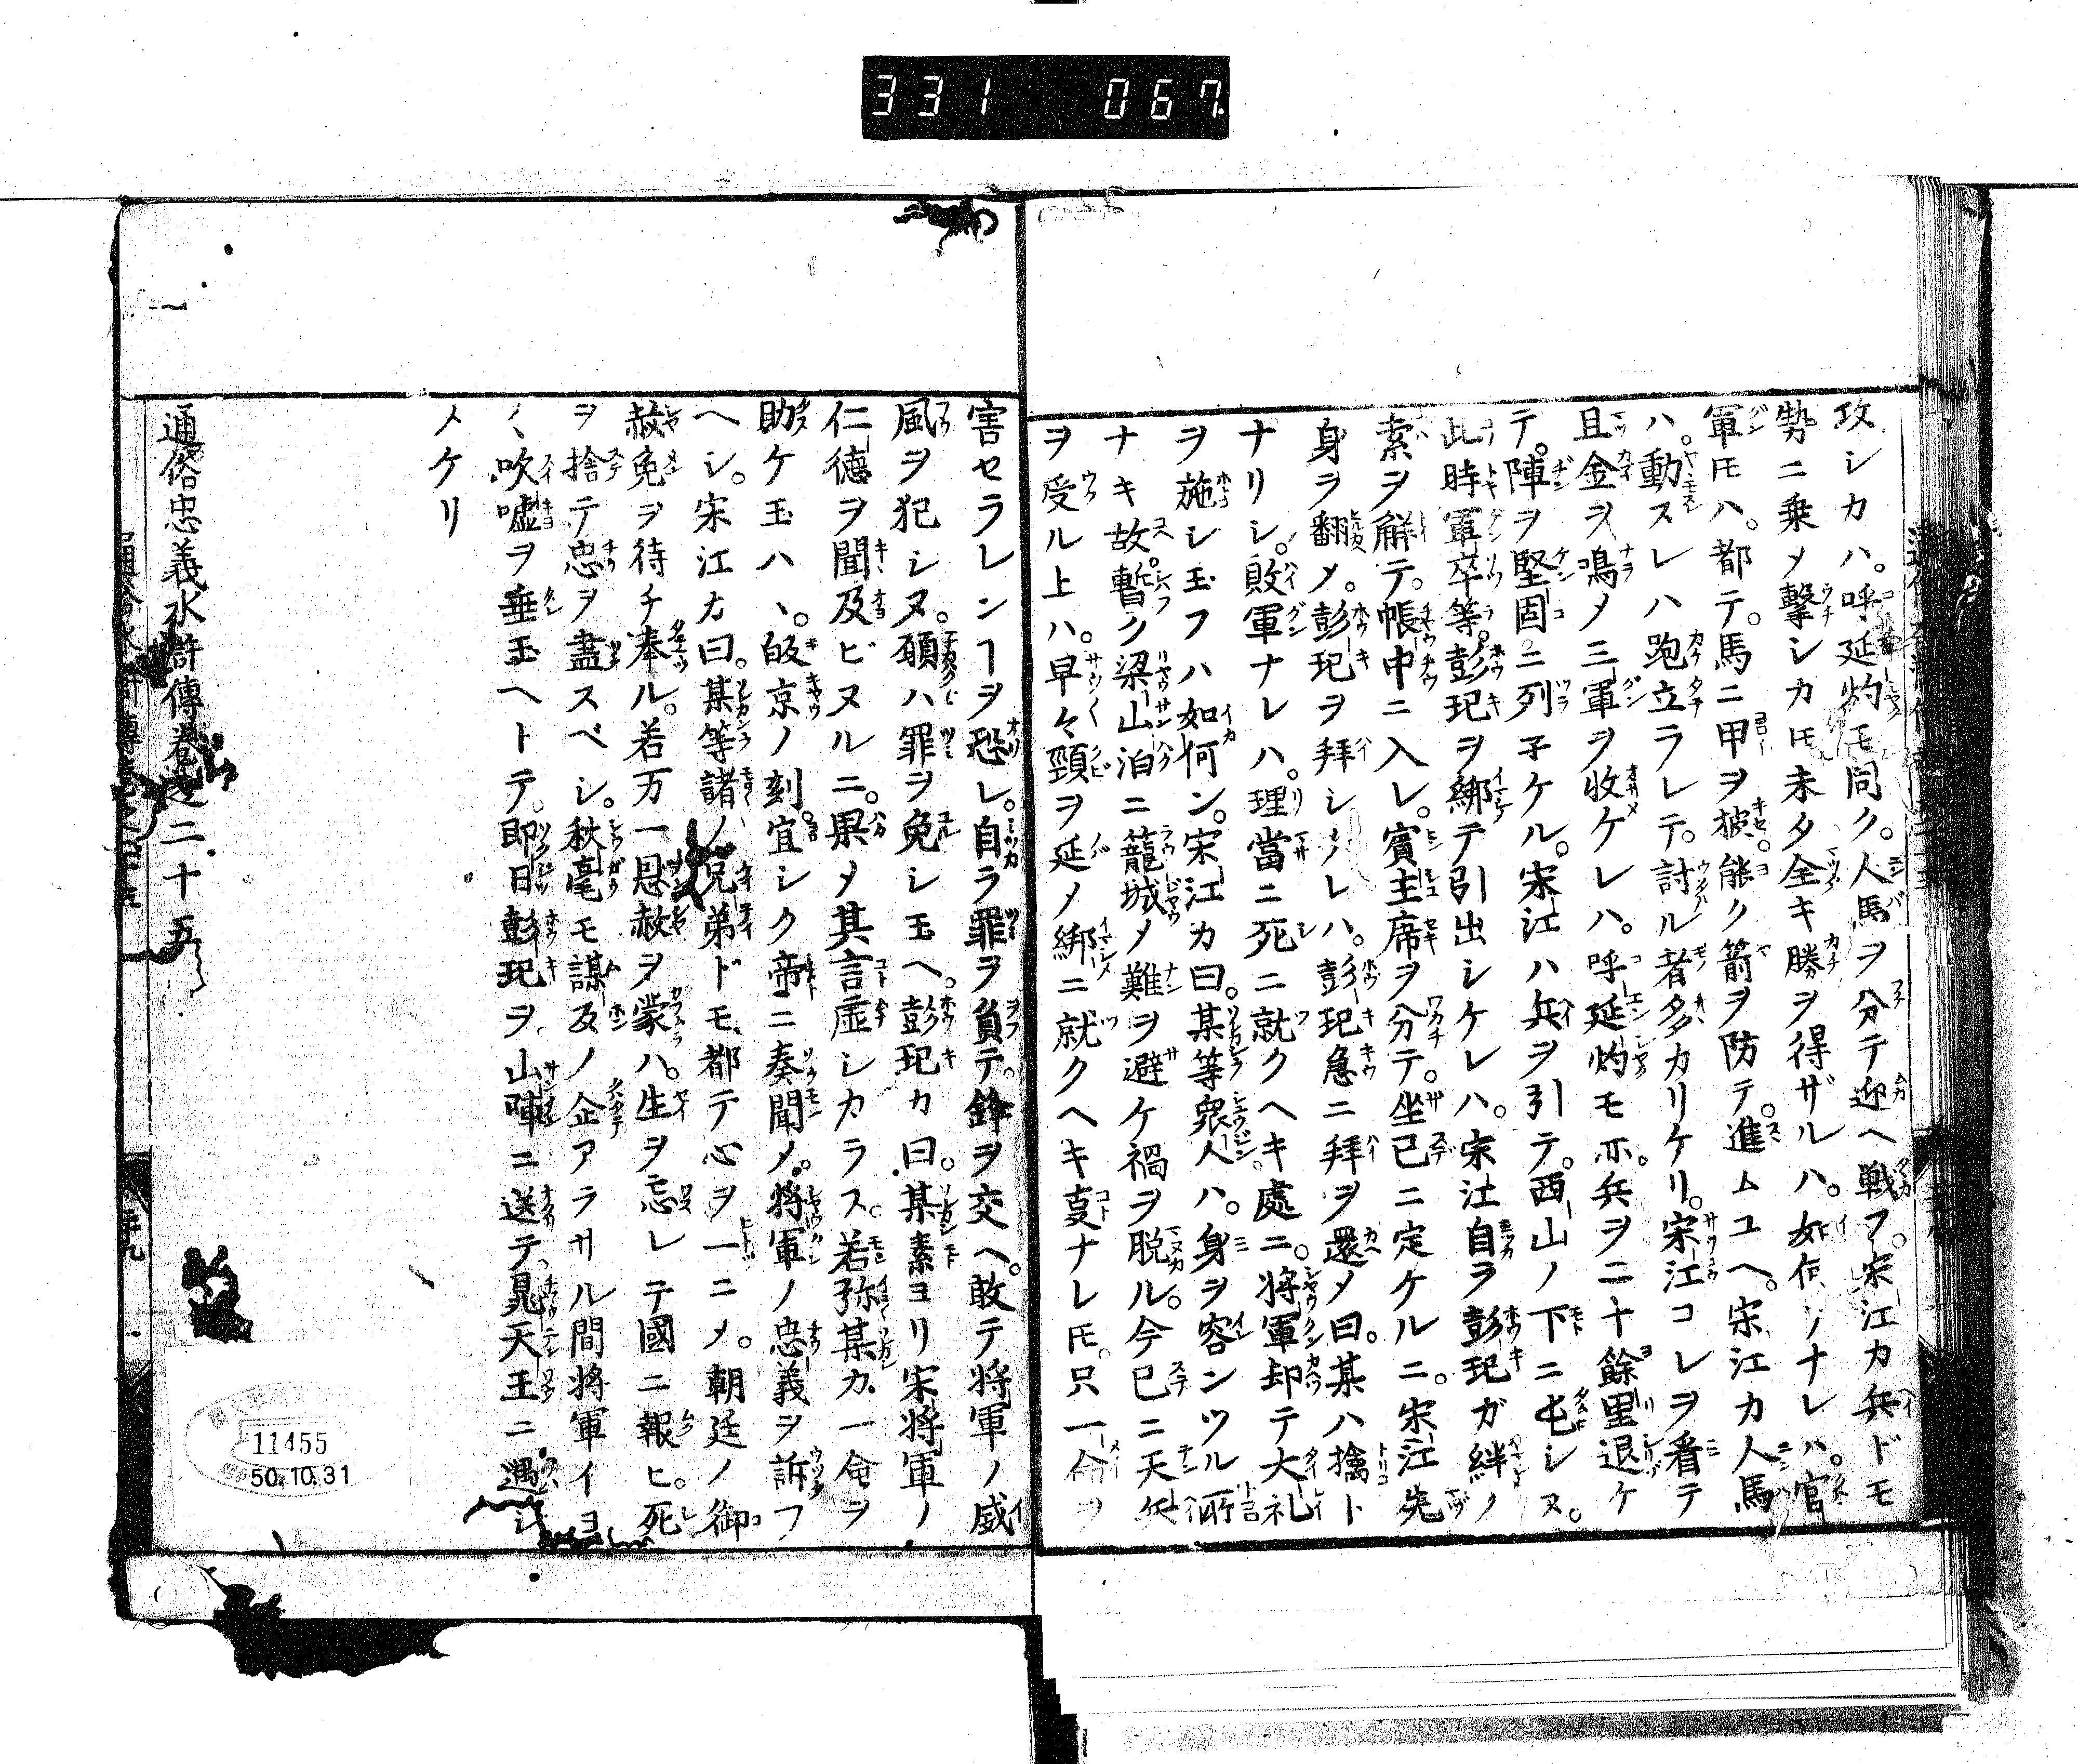 331 067
攻シカハ。呼延灼モ同ク。人馬ヲ分テ迎ヘ戦フ。宋江カ兵ドモ
勢ニ乗メ撃シカ𪜈未タ全キ勝ヲ得ザルハ。如何ソナレハ。官
軍𪜈ハ。都テ。馬ニ甲ヲ披。能ク箭ヲ防テ。進ムユヘ。宋江カ人馬
ハ。動スレハ跑立ラレテ。討ル者多カリケリ。宋江コレヲ看テ
且金ヲ鳴メ三軍ヲ收ケレハ。呼延灼モ亦。兵ヲ二十餘里退ケ
テ。陣ヲ堅固ニ列子ケル。宋江ハ兵ヲ引テ。西山ノ下ニ屯シヌ。
此時軍卒等。彭玘ヲ綁テ引出シケレハ。宋江自ラ彭玘ガ絆ノ
索ヲ觧テ。帳中ニ入レ。賓主席ヲ分テ。坐已ニ定ケルニ。宋江先
身ヲ翻メ。彭玘ヲ拜シケレハ。彭玘急ニ拜ヲ還メ曰。某ハ擒ト
ナリシ。敗軍ナレハ。理當ニ死ニ就クヘキ處ニ。将軍却テ大礼
ヲ施シ玉フハ如何ン。宋江カ曰。某等衆人ハ。身ヲ容ンツル所
ナキ故。暫ク梁山泊ニ籠城メ難ヲ避ケ禍ヲ脱ル。今已ニ天兵
ヲ受ル上ハ。早々頸ヲ延メ綁ニ就クヘキ叓ナレ𪜈。只一命ヲ
害セラレンヿヲ恐レ。自ラ罪ヲ負テ。鋒ヲ交ヘ。敢テ将軍ノ威
風ヲ犯シヌ。願ハ罪ヲ免シ玉ヘ。彭玘カ曰。某素ヨリ宋将軍ノ
仁德ヲ聞及ビヌルニ。果メ其言虛シカラス。若弥某カ一命ヲ
助ケ玉ハヽ。皈京ノ刻。宜シク帝ニ奏聞メ。将軍ノ忠義ヲ訴フ
ヘシ。宋江カ曰。某等諸ノ兄弟ドモ、都テ心ヲ一ニメ。朝廷ノ御
赦免ヲ待チ奉ル。若万一恩赦ヲ蒙ハ。生ヲ忘レテ國ニ報ヒ。死
ヲ捨テ忠ヲ盡スベシ。秋毫モ謀反ノ企アラサル間将軍イヨ
〱吹嘘ヲ垂玉ヘトテ。即日彭玘ヲ山陣ニ送テ、晁天王ニ遇シ
メケリ
通俗忠義水滸傳巻之二十五
11455
50.10.31